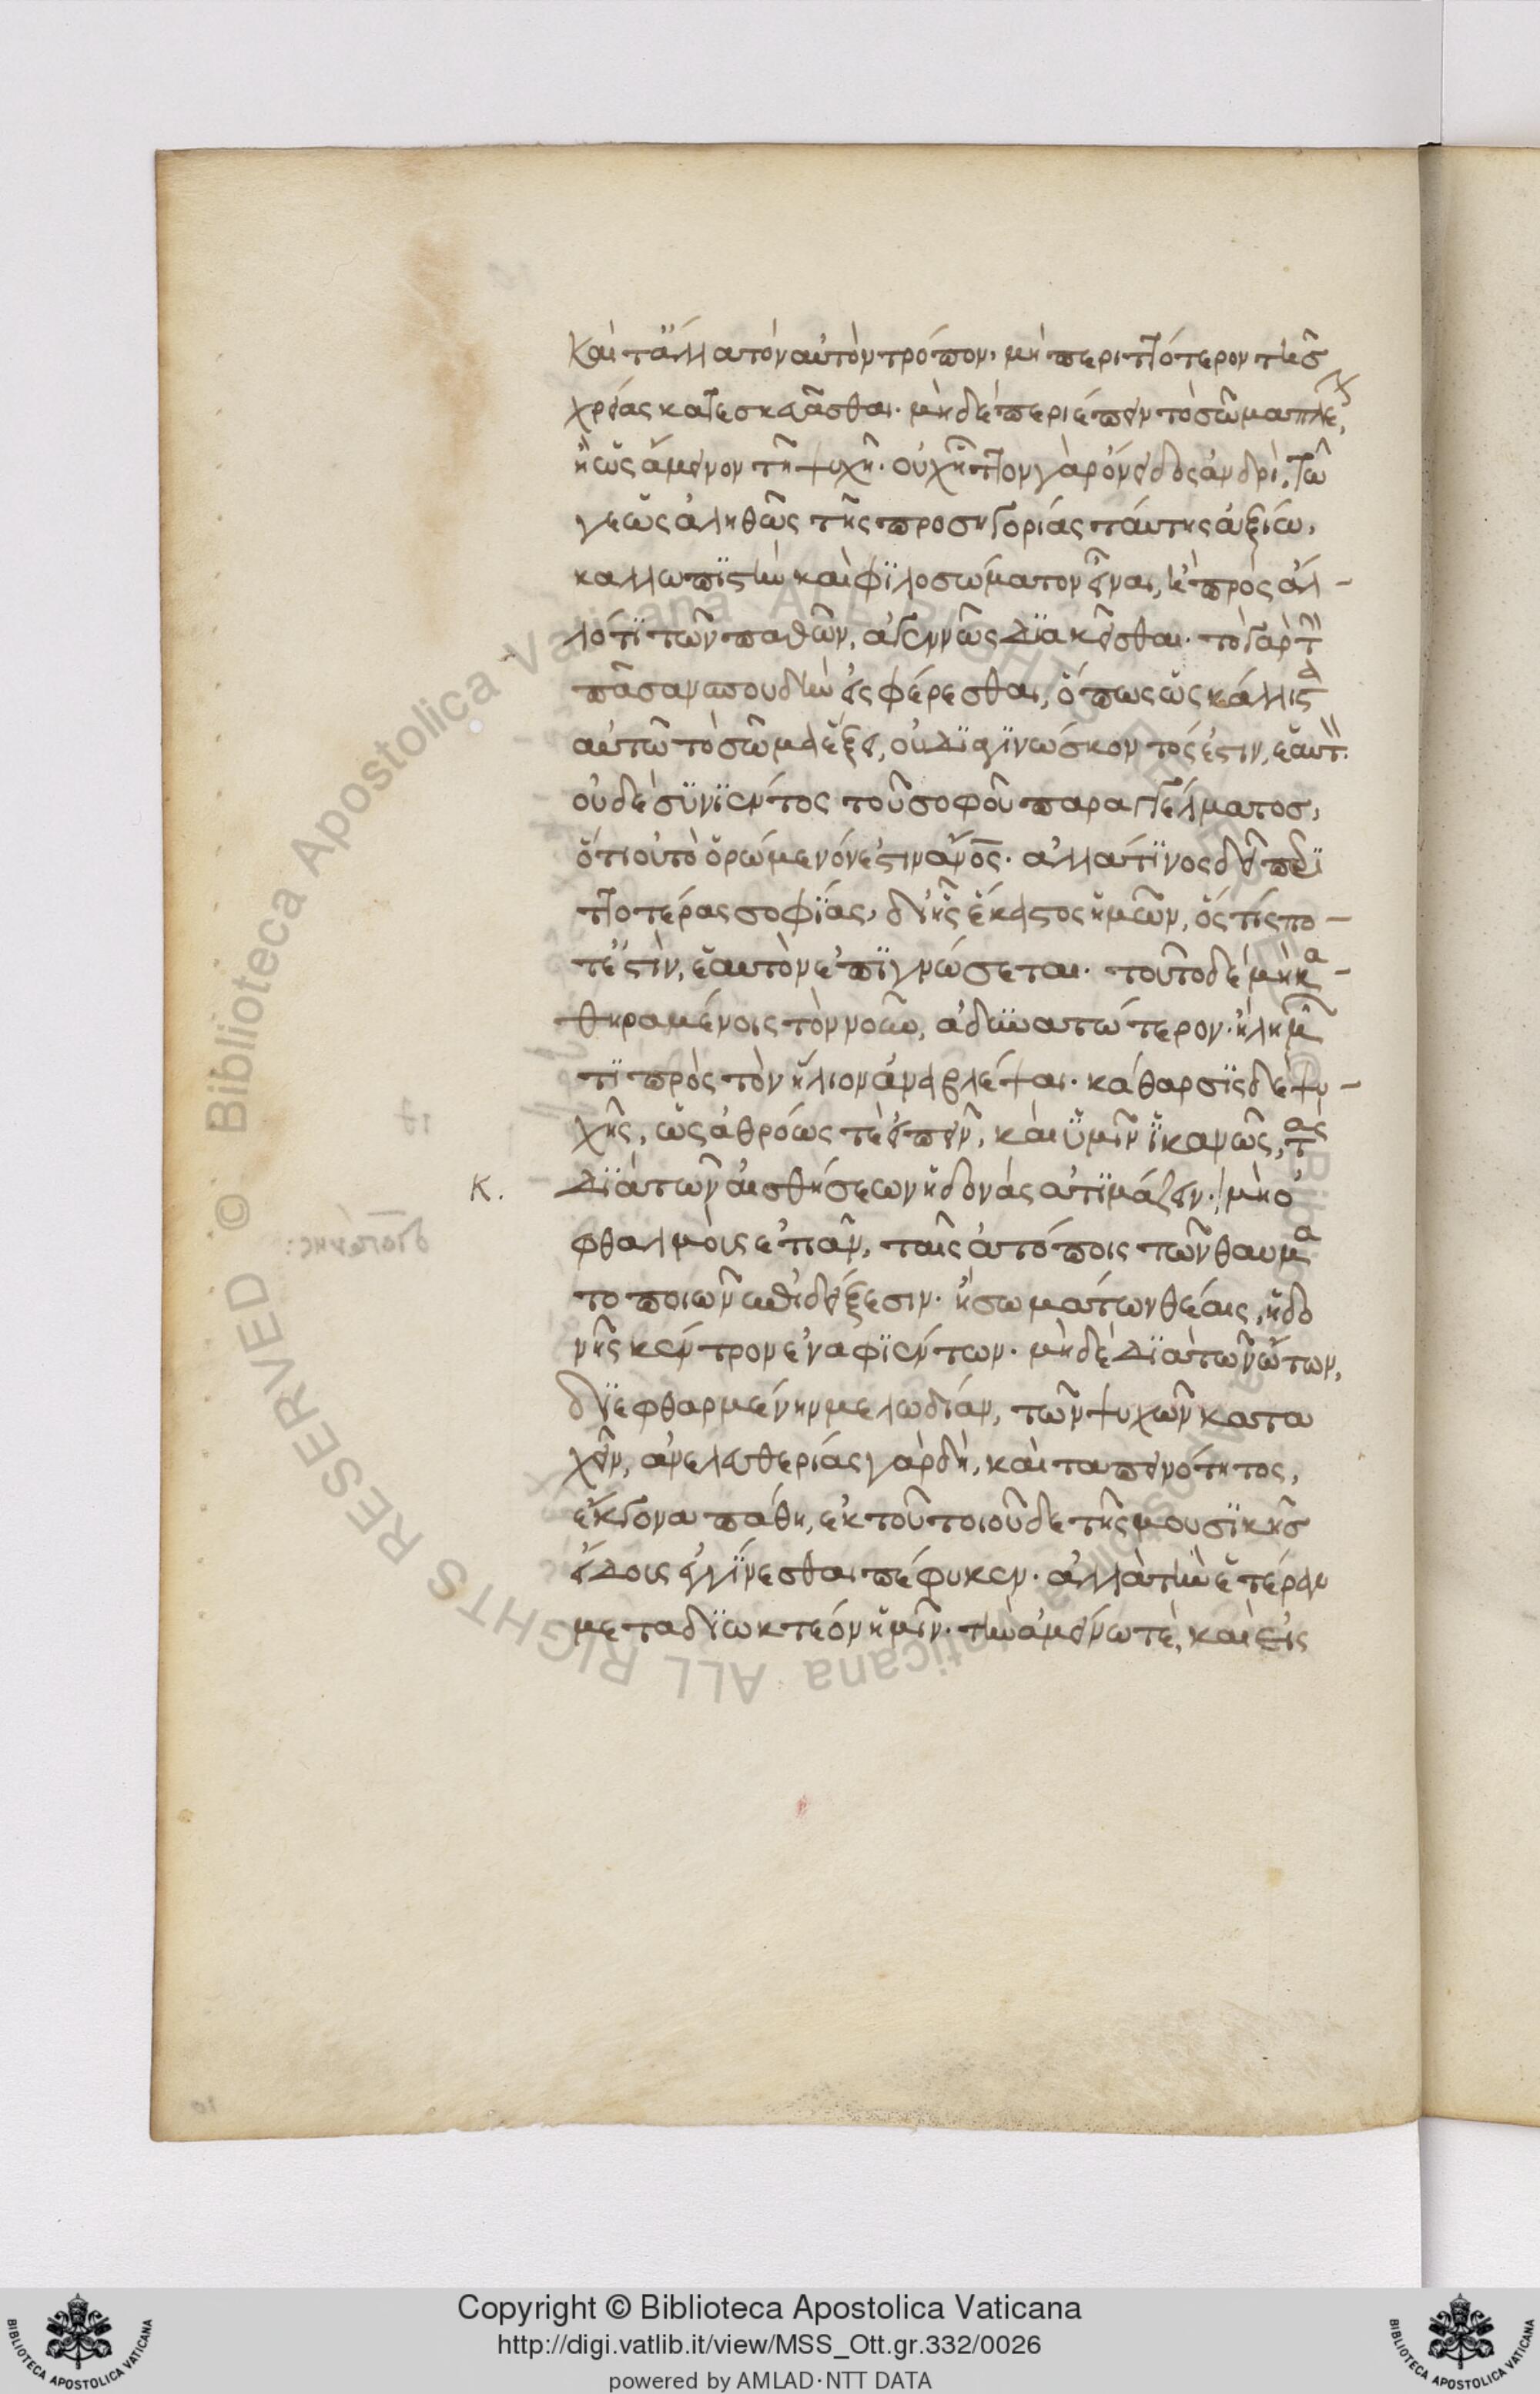 καὶ τἄλλα τὸν αὐτὸν τρόπον, μὴ περιττότερον τῆς
χρείας κατεσκευᾶσθαι· μηδὲ περιέπειν τὸ σῶμα πλέ
ἢ ὡς ἄμεινον τῇ ψυχῇ· οὐχ ἧττον γὰρ ὄνειδος ἀνδρὶ, τῶ
γε ὡς ἀληθῶς τῆς προσηγορίας ταύτης ἀξίω,
καλλωπιστὴν καὶ φιλοσώματον εἶναι, ἢ πρὸς ἄλ-
λό τι τῶν παθῶν, ἀγεννῶς διακεῖσθαι· τὸ γὰρ τ
πᾶσαν σπουδὴν εἰσφέρεσθαι, ὅπως ὡς κάλλιστα
αὐτῶ τὸ σῶμα ἕξει, οὐ διαγινώσκοντός ἐστιν, ἑαυτ
οὐδὲ συνιέντος τοῦ σοφοῦ παραγγέλματος,
ὅτι οὐ τὸ ὁρώμενόν ἐστιν ἄνος· ἀλλά τινος δεῖ περι
ττοτέρας σοφίας, δι' ἧς ἕκαστος ἡμῶν, ὅστίς πο-
τέ ἐστὶν, ἑαυτὸν ἐπιγνώσεται· τοῦτο δὲ μὴ κα-
θηραμένοις τὸν νοῦν, ἀδυνατώτερον· ἢ λημῶν
τι πρὸς τὸν ἥλιον ἀναβλέψαι· κάθαρσις δὲ ψυ-
χῆς, ὡς ἀθρόως τὲ εἰπεῖν, καὶ ὑμῖν ἱκανῶς, τὰς
κ. διὰ τῶν αἰσθήσεων ἡδονὰς ἀτιμάζειν· μὴ ὀ
φθαλμοὺς ἑστιᾶν, ταῖς ἀτόποις τῶν θαυμα
τοποιῶν ἐπιδείξεσιν· ἢ σωμάτων θέαις, ἡδο
νῆς κέντρον ἐναφιέντων· μηδὲ διὰ τῶν ὤτων,
διεφθαρμένην μελωδίαν, τῶν ψυχῶν κατα
χεῖν, ἀνελευθερίας γὰρ δὴ, καὶ ταπεινότητος,
ἔκγονα πάθη, ἐκ τοῦ τοιοῦδε τῆς μουσικῆς
εἴδους ἐγγίνεσθαι πέφυκεν· ἀλλὰ τὴν ἑτέραν
μεταδιωκτέον ἡμῖν· τὴν ἀμείνω τὲ, καὶ εἰς
Copyright © Biblioteca Apostolica Vaticana
http://digi.vatlib.it/view/MSS_Ott.gr.332/0026
powered by AMLAD·NTT DATA